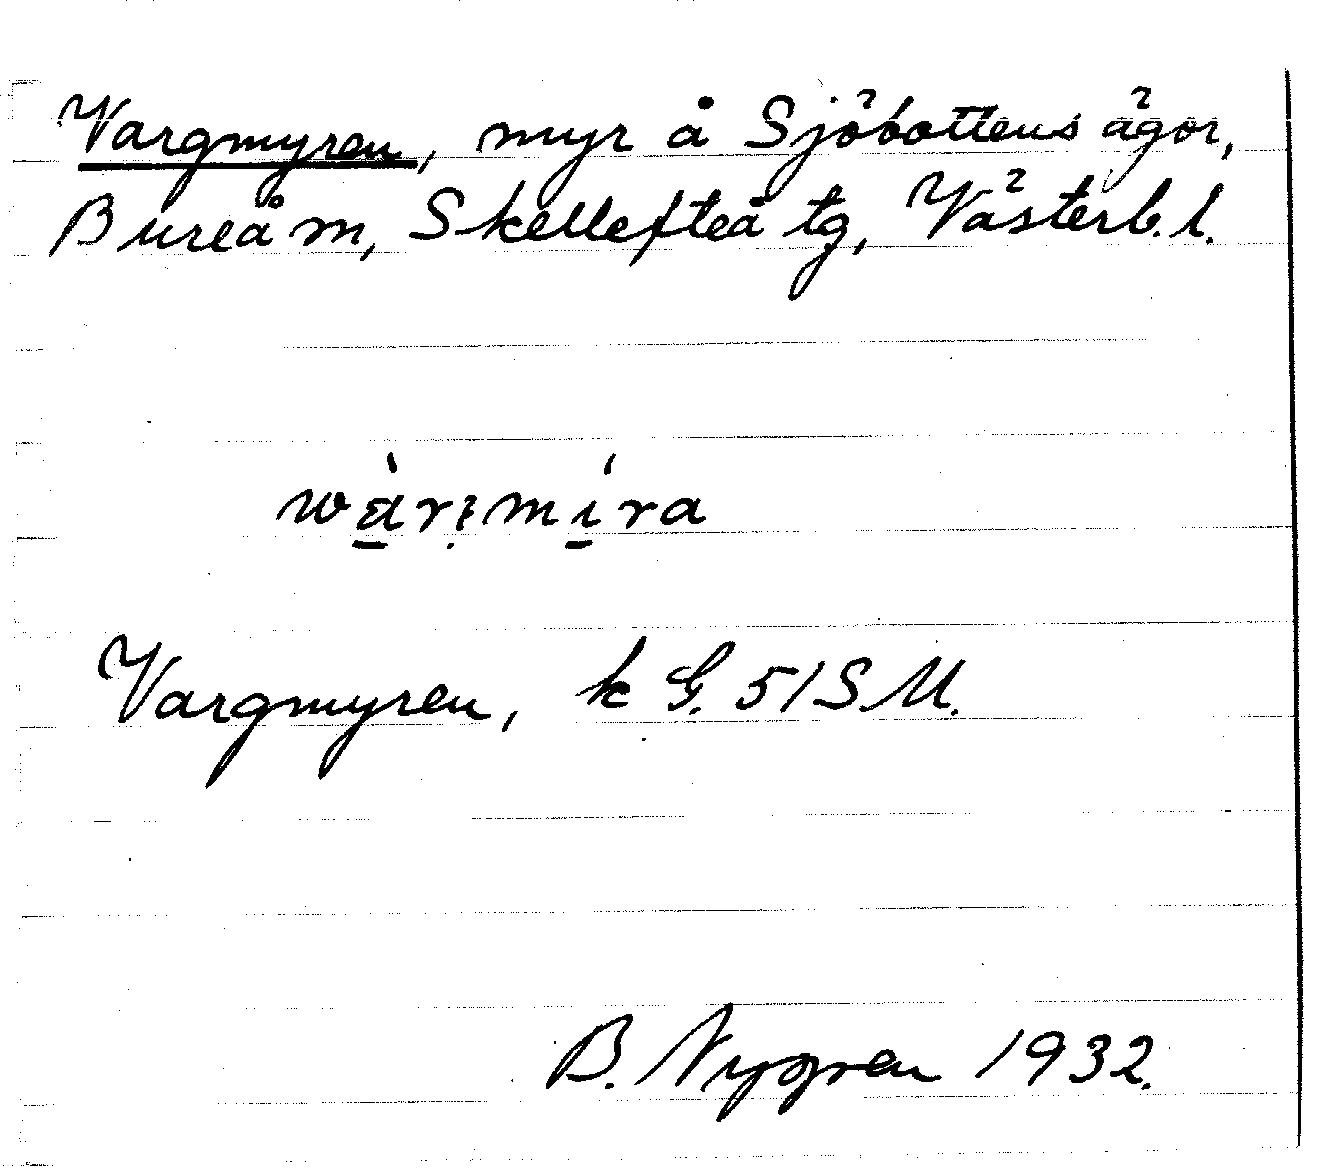 Vargmyren, myr å Sjöbottens ägor,
Bureå m, Skellefteå tg, Västerb. l.
Vargmyren, k G. 51 S M.
B. Nygren 1932.